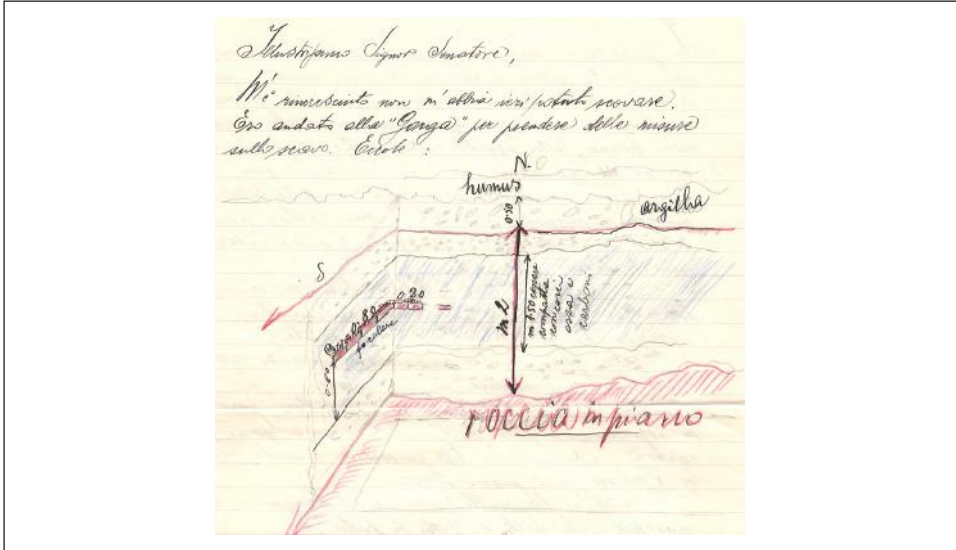 Illustrissimo Signor Senatore,
M'è rincresciuto non m'abbia ieri potuto scovare.
Ero andato alla "Ganga" per prendere delle misure
sullo scavo. Eccole :
N.
humus
0.50
argilla
S
0.20
focolare
0.60
m 2
m 1.50 cenere
compatta
con cocci
ossa e
carboni
roccia in piano